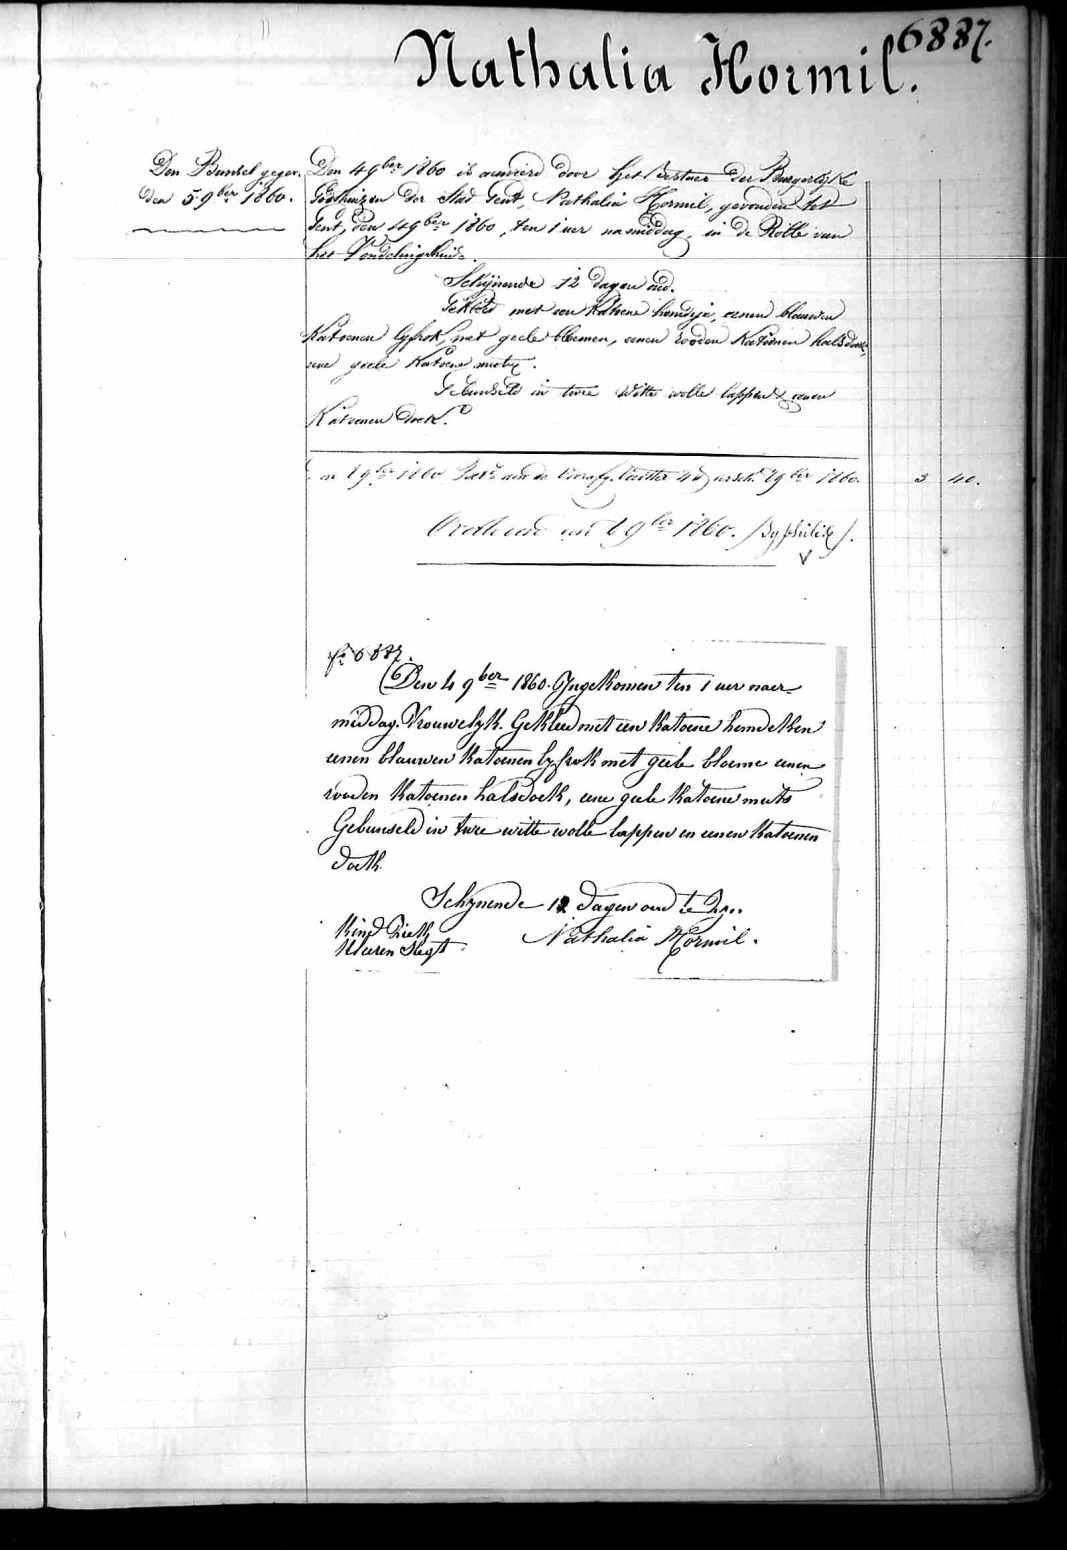 6887.
Nathalia Hormil.
Den Bunsel gegev.
den 5 9ber 1860.
Den 4 9ber 1860 is aenveird door het Bestuer der Burgerlyke
Godshuizen der Stad Gent, Nathalia Hormil, gevonden tot
Gent, den 4 9ber 1860, ten 1 uer namiddag, in de Rolle van
het Vondelingshuis.
Schijnende 12 dagen oud.
Gekleed met een Katoene hemdeje, eenen blauwen
Katoenen lyfrok, met geele bloemen, eenen rooden Katoenen halsdoek,
eene geele Katoene muts.
Gebunseld in twee witte wolle lappen & eenen
Katoenen doek.
8 9ber 1860 aen de 4 d 8 9ber 1860. 3 40.
Overleden den 8 9ber 1860. (Syphilis).
No 6887.
Den 4 9ber 1860. Ingekomen ten 1 uer naer-
middag. Vrouwelyk. Gekleed met een Katoene hemdeken
eenen blauwen Katoenen lyfrok met geele bloeme eenen
rooden Katoenen halsdoek, eene geele Katoene muts
Gebunseld in twee witte wolle lappen en eenen Katoenen
doek.
Schynende 12 dagen oud te zyn.
Kind Ziek
Nathalia Hormil.